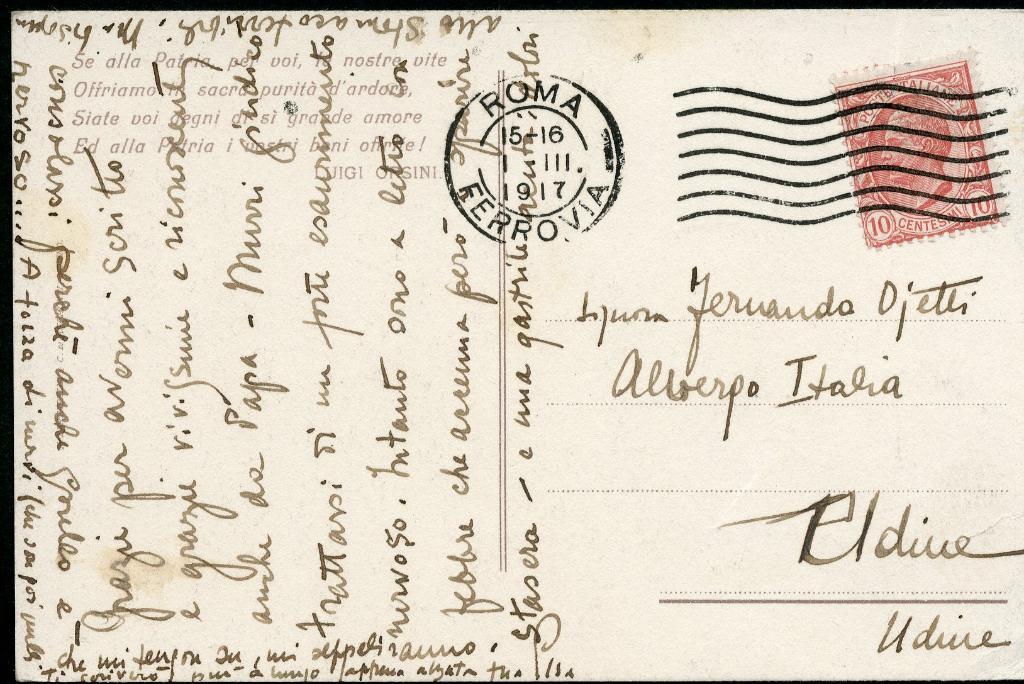 Se alla Patria, per voi, le nostre vite
Offriamo in sacra purità d'ardore,
Siate voi degni di sì grande amore
Ed alla Patria i vostri beni offrite!
LUIGI ORSINI.
ROMA
15-16
1 III.
1917
FERROVIA
POSTE ITALIANE
10 CENTESIMI 10
Signora Fernanda Ojetti
Albergo Italia
Udine
Udine
Grazie per avermi scritto
e grazie vivissime e riconoscenti
anche da Papa - Murri
trattarsi di un forte esaurimento
nervoso. Intanto sono a letto con
febbre che accenna però a sparire
stasera - e una gastrite
allo stomaco terribile. Ma bisogna
consolarsi perchè anche
nervoso... A forza di nervi (che son poi quelli
che mi tengon su, mi seppelliranno.
Ti scriverò più a lungo appena alzata tua